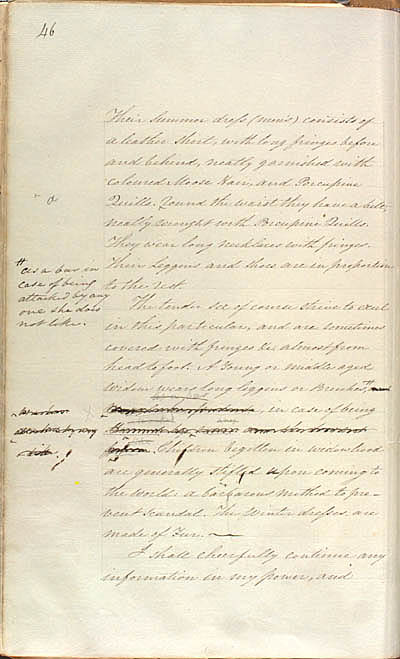 46
Their Summer dress (men's) consists of
a leather Shirt, with long fringes before
and behind, neatly garnished with
coloured Moose Hair, and Porcupine
Quills. Round the waist they have a belt,
neatly wrought with Porcupine Quills.
They wear long necklaces with fringes.
Their Leggins and Shoes are in proportion
to the rest.
The tender sex of course strive to excel
in this particular, and are sometimes
covered with fringes &c almost from
head to foot. A Young or middle aged
widow wears long leggins or Breeches #
in case of being
Children begotten in widowhood
are generally stifled upon coming to
the world: a barbarous method to pre-
vent scandal. The Winter dresses are
made of Fur.
I shall cheerfully continue any
information in my power, and
# as a bar in
case of being
attacked by any
one she does
not like.